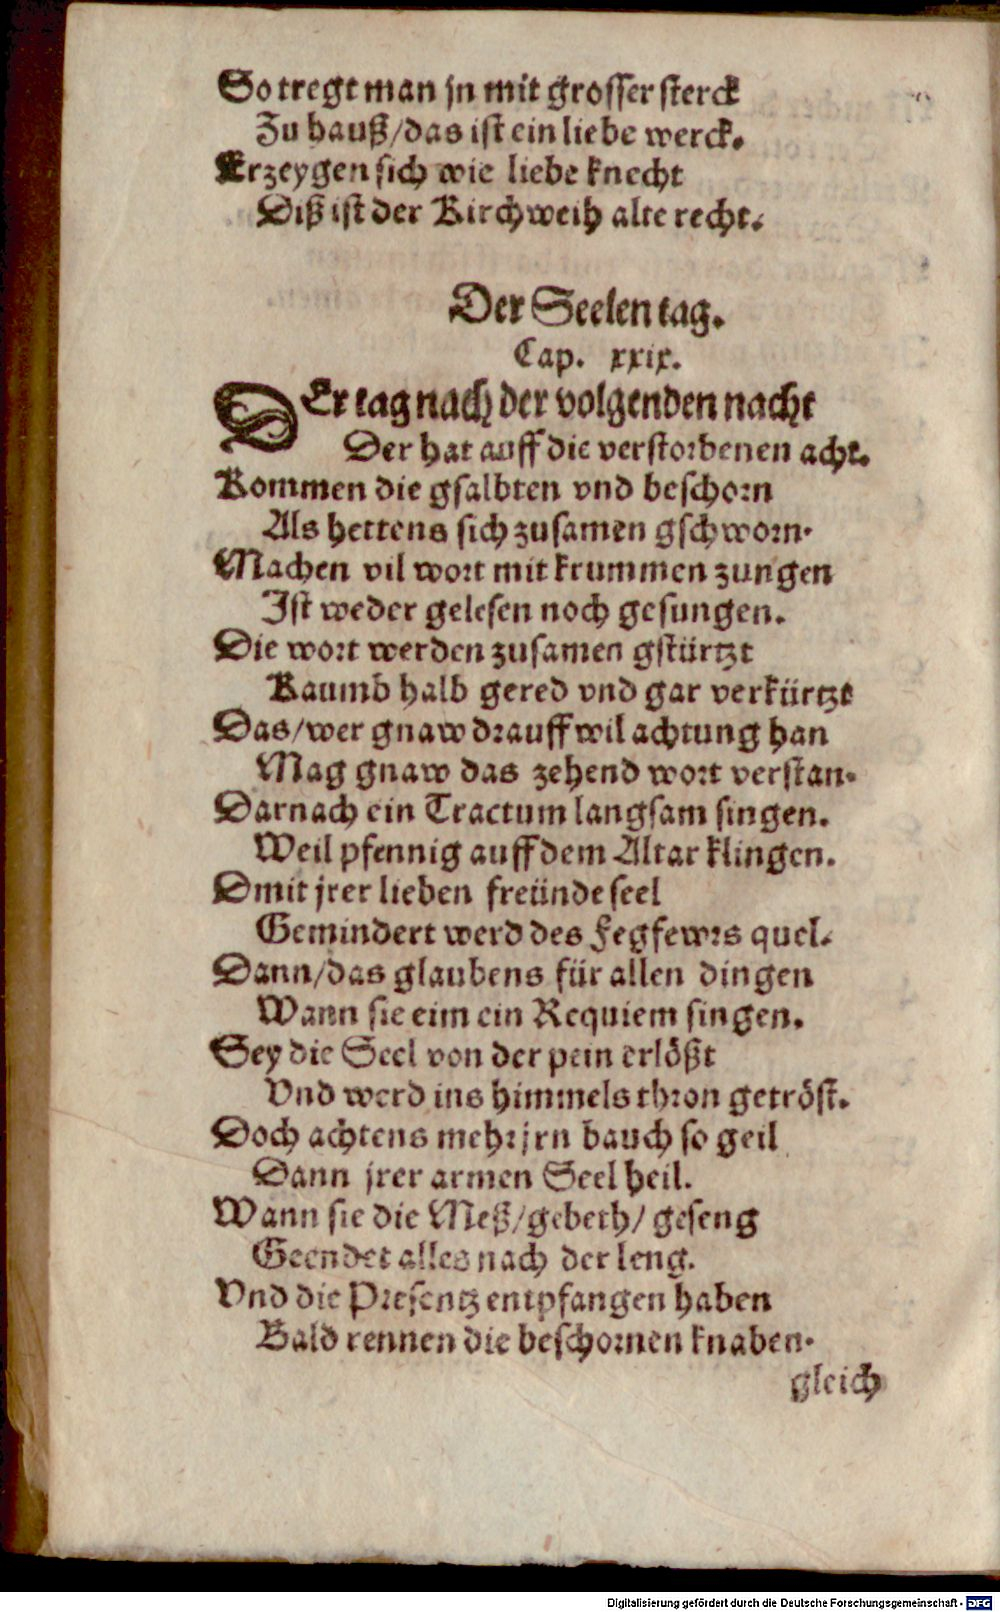 So tregt man jn mit grosser sterck
Zu hauß/das ist ein liebe werck.
Erzeygen sich wie liebe knecht
Diß ist der Kirchweih alte recht.
Der Seelen tag.
Cap. xxix.
DEr tag nach der volgenden nacht
Der hat auff die verstorbenen acht.
Kommen die gsalbten vnd beschorn
Als hettens sich zusamen gschworn.
Machen vil wort mit krummen zungen
Ist weder gelesen noch gesungen.
Die wort werden zusamen gstürtzt
Kaumb halb gered vnd gar verkürtzt
Das/wer gnaw drauff wil achtung han
Mag gnaw das zehend wort verstan.
Darnach ein Tractum langsam singen.
Weil pfennig auff dem Altar klingen.
Dmit jrer lieben freünde seel
Gemindert werd des Fegfewrs quel.
Dann/das glaubens für allen dingen
Wann sie eim ein Requiem singen.
Sey die Seel von der pein erlößt
Vnd werd ins himmels thron getröst.
Doch achtens mehr jrn bauch so geil
Dann jrer armen Seel heil.
Wann sie die Meß/gebeth/ geseng
Geendet alles nach der leng.
Vnd die Presentz entpfangen haben
Bald rennen die beschornen knaben.
gleich
Digitalisierung gefördert durch die Deutsche Forschungsgemeinschaft - DFG